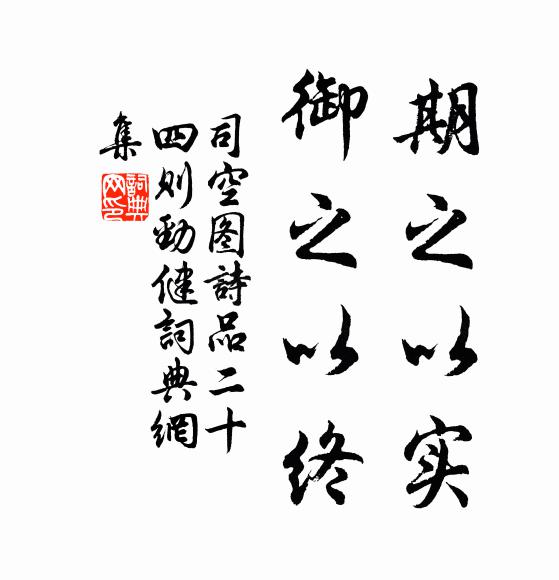 期之以实
御之以终
司空图詩品二十
四则勁健詞典網
集
詞典
网印